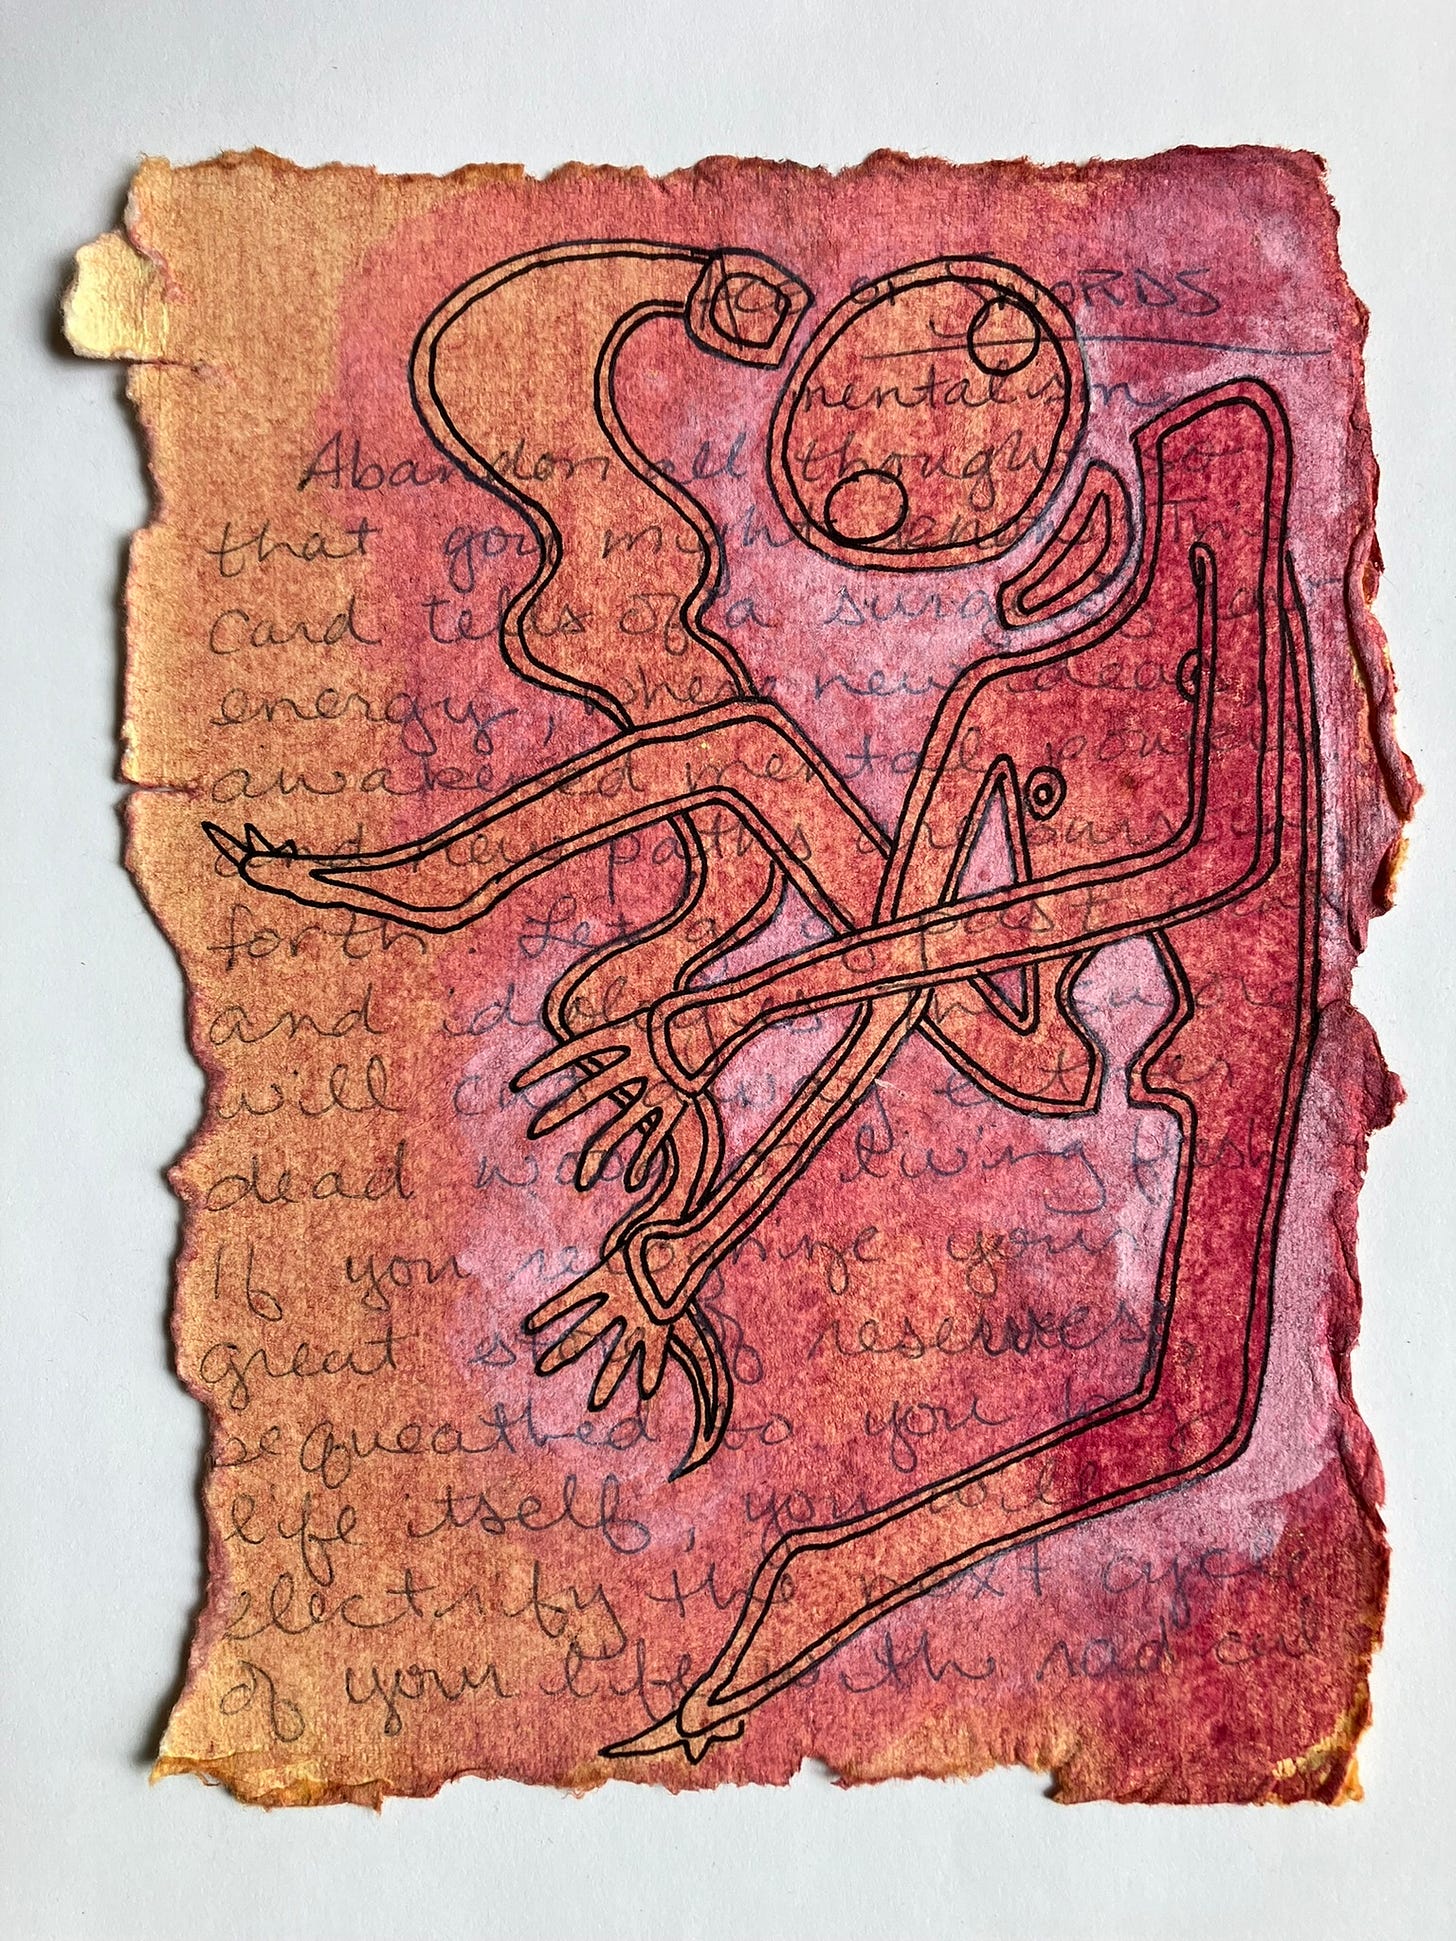 ACE OF SWORDS
mentalism
Abandon all thought so
that you might reach This
card tells of a surging
energy, where new ideas,
awakened mental powers
and new paths are
forth. Let go of past
and ideologies
will
dead wood living flesh
If you recognize your
great store of reserves,
bequeathed to you by
life itself, you will
electrify the next cycle
of your life with